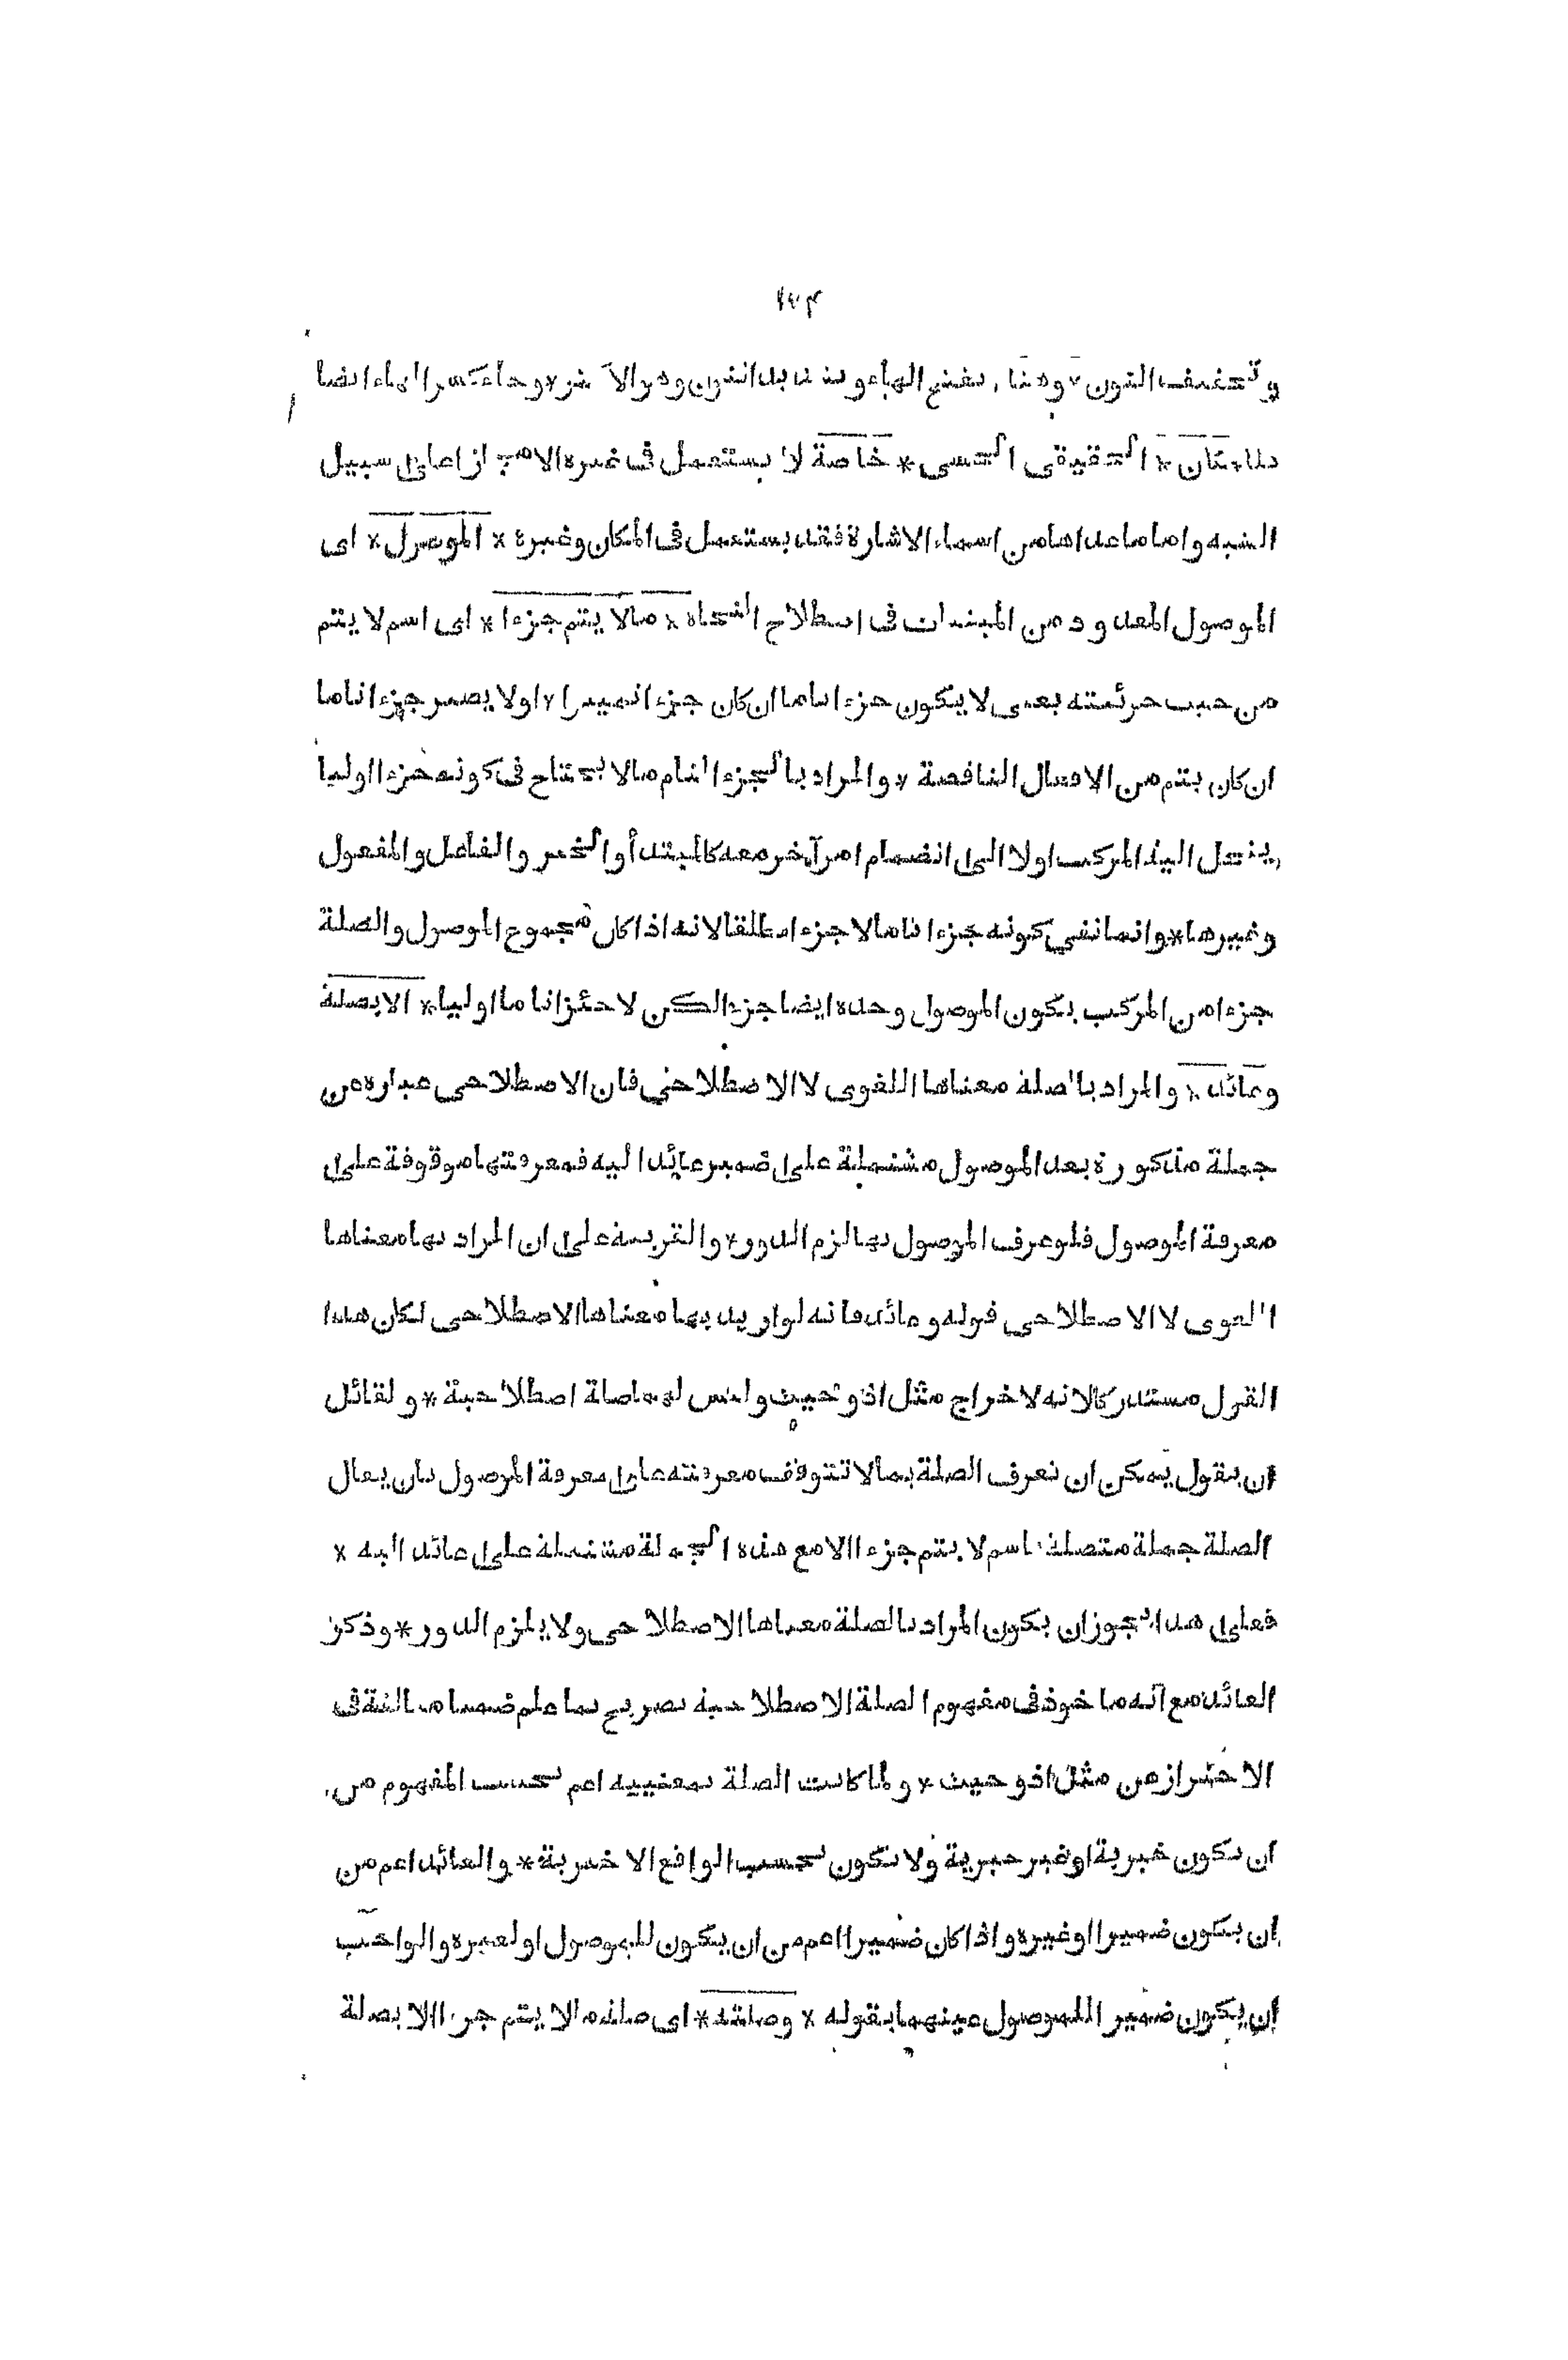 وتخفيف النون * وهنا بفتح الهاء وتشديد النون وهو الاكثر * وجاء كسر الهاء ايضا
للمكان * الحقيقى الحسى * خاصة لا يستعمل فى غيره الا مجازا على سبيل
التشبيه واما ما عداها من اسماء الاشارة فقد يستعمل فى المكان وغيره * الموصول * اى
الموصول المعدود من المبنيات فى اصطلاح النحاة * ما لا يتم جزءا * اى اسم لا يتم
من حيث جزئيته يعنى لا يكون جزءا تاما ان كان جزءا تمييزا * او لا يصير جزءا تاما
ان كان يتم من الافعال الناقصة * والمراد بالجزء التام ما لا يحتاج فى كونه جزءا اوليا
ينحل اليه المركب اولا الى انضمام امر آخر معه كالمبتدأ والخبر والفاعل والمفعول
وغيرها * وانما نفى كونه جزءا تاما لا جزءا مطلقا لانه اذا كان مجموع الموصول والصلة
جزءا من المركب يكون الموصول وحده ايضا جزءا لكن لا جزءا تاما اوليا * الا بصلة
وعائد * والمراد بالصلة معناها اللغوى لا الاصطلاحى فان الاصطلاحى عبارة عن
جملة مذكورة بعد الموصول مشتملة على ضمير عائد اليه فمعرفتها موقوفة على
معرفة الموصول فلو عرف الموصول بها لزم الدور * والقرينة على ان المراد بها معناها
اللغوى لا الاصطلاحى قوله وعائد فانه لو اريد بها معناها الاصطلاحى لكان هذا
القول مستدركا لانه لاخراج مثل اذ وحيث وليس لهما صلة اصطلاحية * ولقائل
ان يقول يمكن ان نعرف الصلة بما لا تتوقف معرفته على معرفة الموصول بان يقال
الصلة جملة متصلة باسم لا يتم جزءا الا مع هذه الجملة مشتملة على عائد اليه *
فعلى هذا يجوز ان يكون المراد بالصلة معناها الاصطلاحى ولا يلزم الدور * وذكر
العائد مع انه ماخوذ فى مفهوم الصلة الاصطلاحية تصريح بما علم ضمنا مبالغة فى
الاحتراز عن مثل اذ وحيث * ولما كانت الصلة بمعنييه اعم بحسب المفهوم من
ان تكون خبرية او غير خبرية ولا تكون بحسب الواقع الا خبرية * والعائد اعم من
ان يكون ضميرا او غيره واذا كان ضميرا اعم من ان يكون للموصول او لغيره والواجب
ان يكون ضميرا للموصول عينهما بقوله * وصلته * اى صلة ما لا يتم جزءا الا بصلة